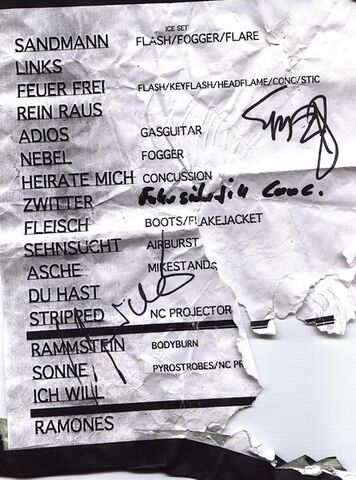 ICE SET
SANDMANN FLASH/FOGGER/FLARE
LINKS
FEUER FREI FLASH/KEYFLASH/HEADFLAME/CONC/STIC
REIN RAUS
ADIOS GASGUITAR
NEBEL FOGGER
HEIRATE MICH CONCUSSION
ZWITTER
FLEISCH BOOTS/FLAKEJACKET
SEHNSUCHT AIRBURST
ASCHE MIKESTANDS
DU HAST
STRIPPED NC PROJECTOR
RAMMSTEIN BODYBURN
SONNE PYROSTROBES/NC PR
ICH WILL
RAMONES